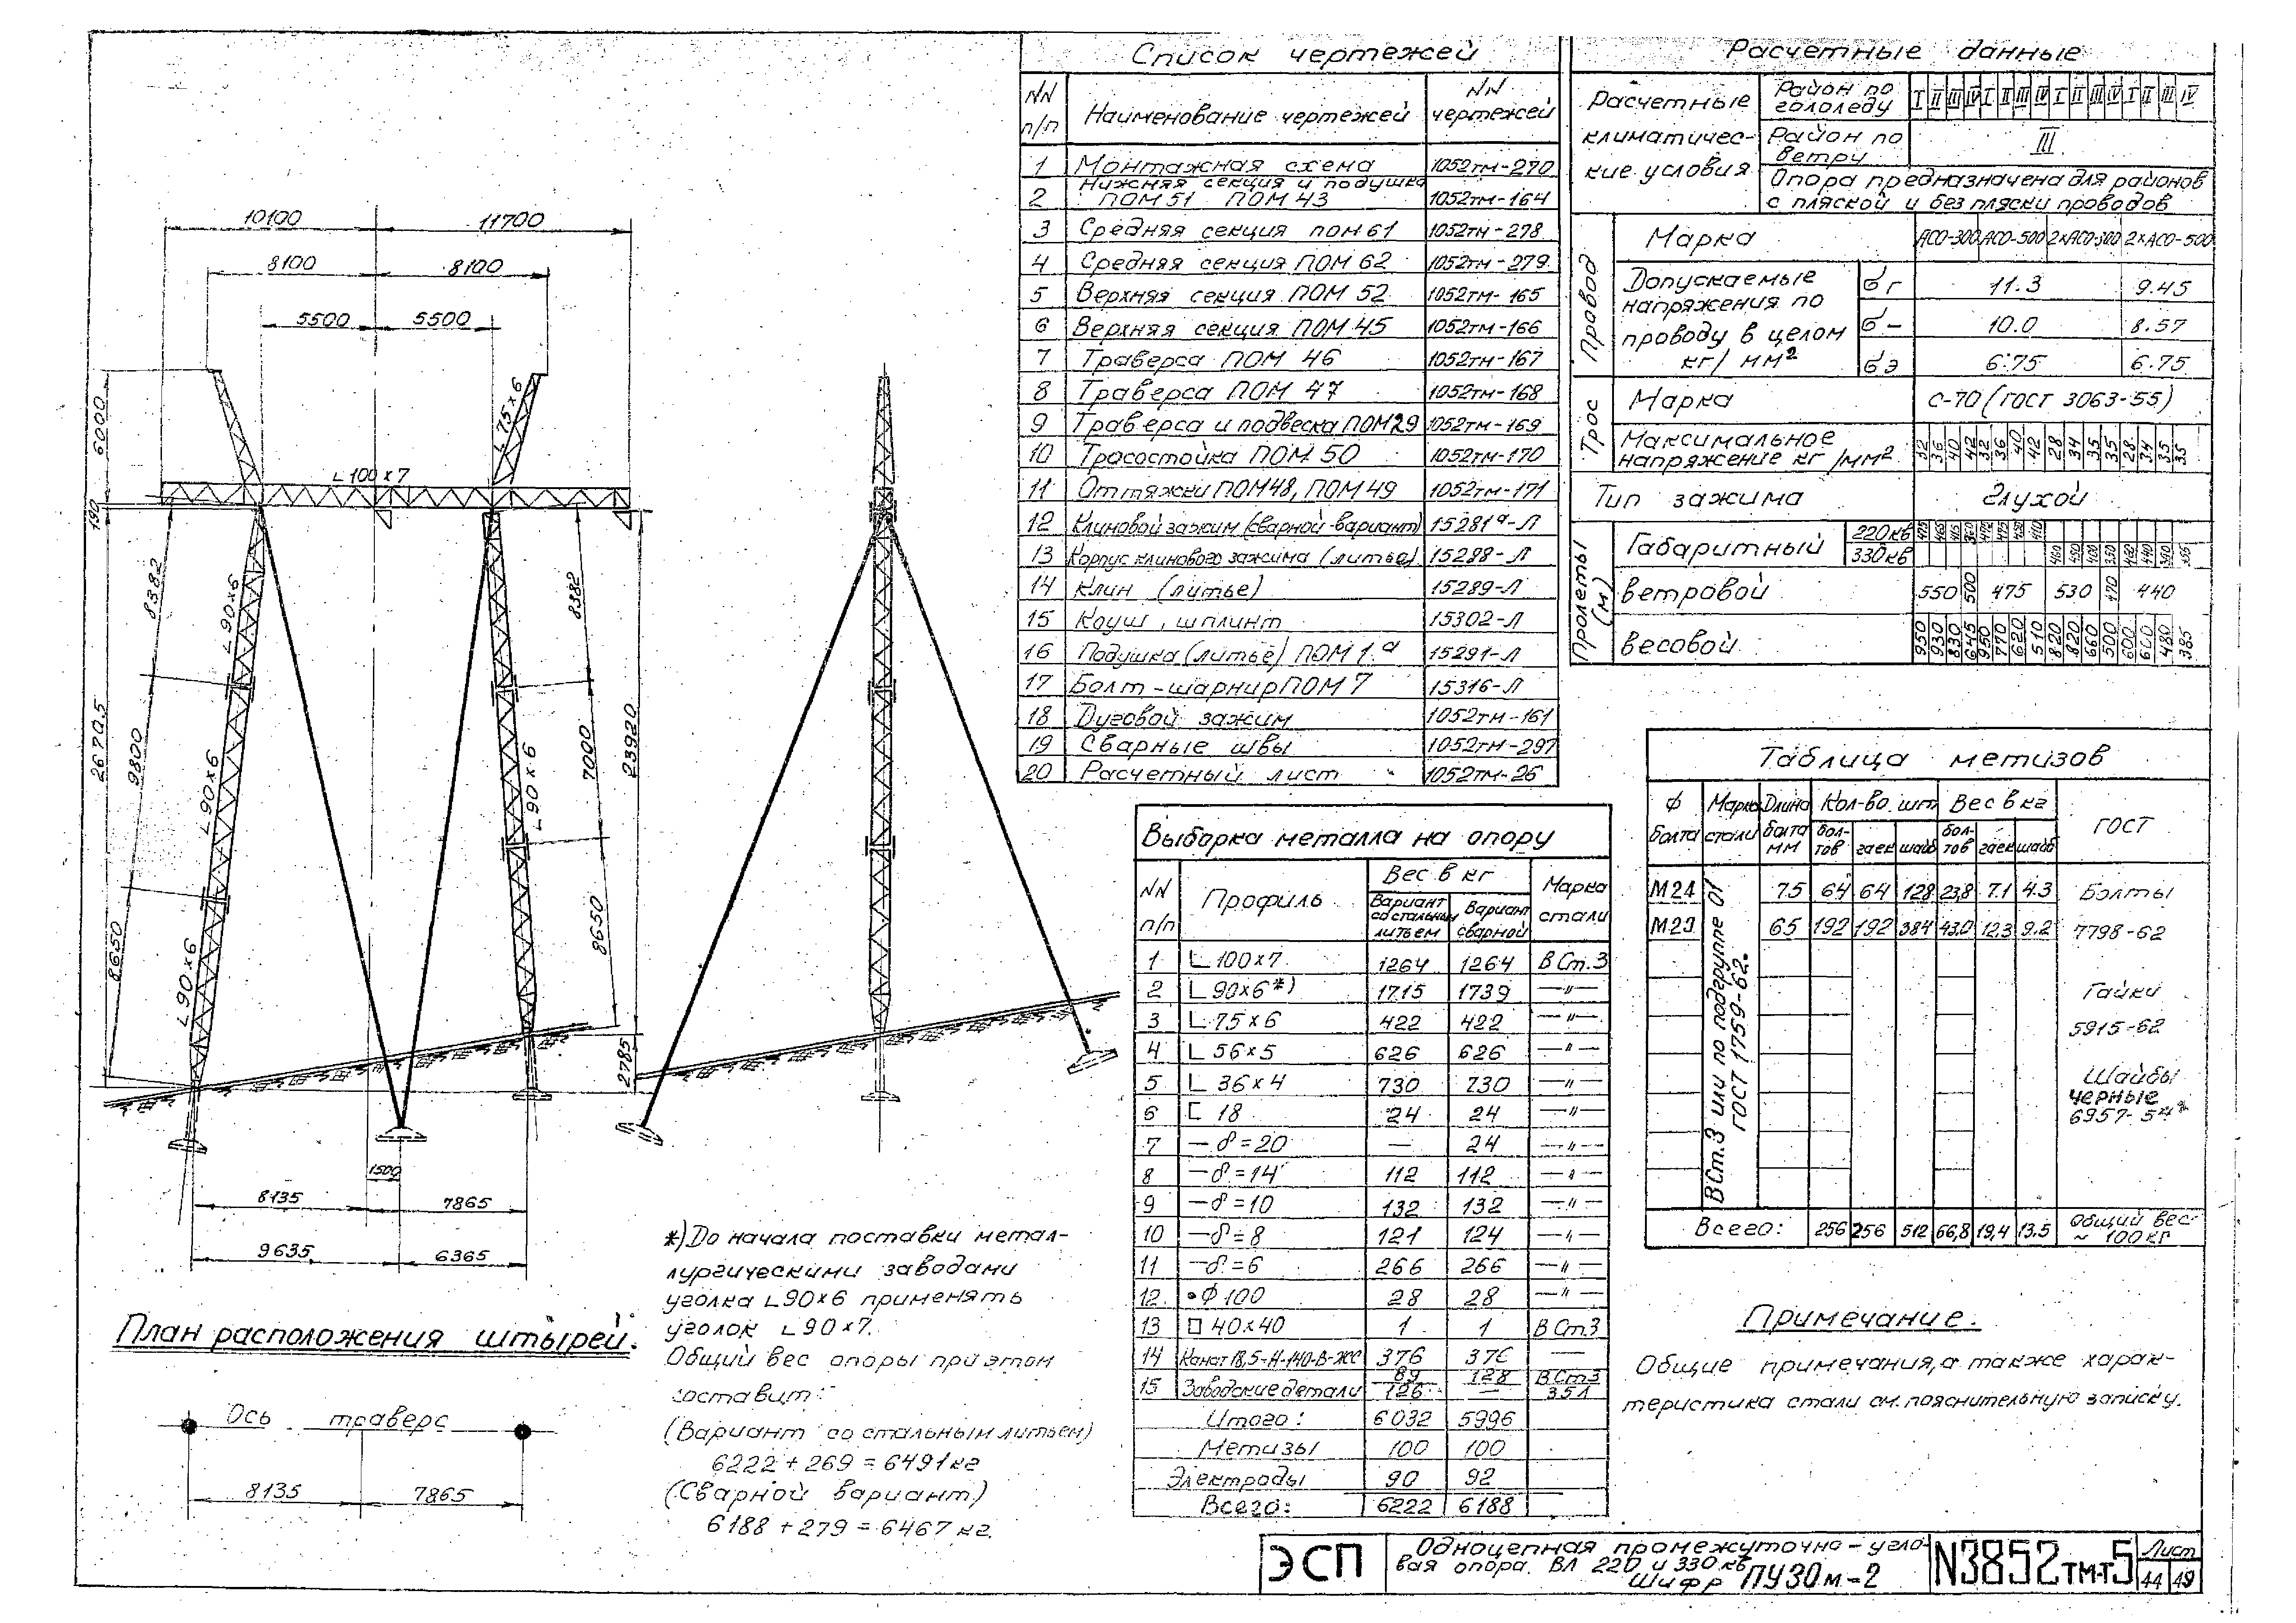 10100
11700
8100
8100
5500
5500
6000
L 75×6
L 100×7
190
8382
L 90×6
8382
26 70.5
9800
L 90×6
L 90×6
7000
23920
8650
L 90×6
8650
2785
1500
8135
7865
9635
6365
План расположения штырей.
Ось траверс
8135
7865
*) До начала поставки метал-
лургическими заводами
уголка L 90×6 применять
уголок L 90×7.
Общий вес опоры при этом
составит:
(Вариант со стальным литьем)
6222 + 269 = 6491 кг
(Сварной вариант)
6188 + 279 = 6467 кг.
Список чертежей
NN п/п Наименование чертежей NN чертежей
1 Монтажная схема 1052тм-270
2 Нижняя секция и подушка ПОМ 51 ПОМ 43 1052тм-164
3 Средняя секция ПОМ 61 1052тм-278
4 Средняя секция ПОМ 62 1052тм-279
5 Верхняя секция ПОМ 52 1052тм-165
6 Верхняя секция ПОМ 45 1052тм-166
7 Траверса ПОМ 46 1052тм-167
8 Траверса ПОМ 47 1052тм-168
9 Траверса и подвеска ПОМ 29 1052тм-169
10 Тросостойка ПОМ 50 1052тм-170
11 Оттяжки ПОМ 48, ПОМ 49 1052тм-171
12 Клиновой зажим (сварной вариант) 15281а-Л
13 Корпус клинового зажима (литье) 15288-Л
14 Клин (литье) 15289-Л
15 Коуш, шплинт 15302-Л
16 Подушка (литье) ПОМ 1а 15291-Л
17 Болт-шарнир ПОМ 7 15316-Л
18 Дуговой зажим 1052тм-161
19 Сварные швы 1052тм-297
20 Расчетный лист 1052тм-26
Расчетные данные
Расчетные климатичес-кие условия
Район по гололеду I II III IV I II III IV I II III IV I II III IV
Район по ветру III
Опора предназначена для районов
с пляской и без пляски проводов
Провод
Марка АСО-300 АСО-500 2×АСО-300 2×АСО-500
Допускаемые напряжения по проводу в целом кг/мм²
σг 11.3 9.45
σ– 10.0 8.57
σэ 6.75 6.75
Трос
Марка С-70 (ГОСТ 3063-55)
Максимальное напряжение кг/мм² 32 36 40 42 32 36 40 42 28 34 35 35 28 34 35 35
Тип зажима Глухой
Пролеты (м)
Габаритный 220кв
330кв
Ветровой 550 500 475 530 470 440
Весовой 950 930 830 645 950 770 620 510 820 820 660 500 600 600 480 385
Таблица метизов
Ф болта Марка стали Длина болта мм Кол-во шт Вес в кг ГОСТ
бол-тов гаек шайб бол-тов гаек шайб
М24 75 64 64 128 23,8 7.1 4.3 Болты
М23 65 192 192 384 43.0 12.3 9.2 7798-62
ВСт.3 или по подгруппе 01
ГОСТ 1759-62.
Гайки
5915-62
Шайбы
черные
6957-54*
Всего: 256 256 512 66,8 19,4 13.5 Общий вес ~ 100кг
Выборка металла на опору
NN п/п Профиль Вес в кг Марка стали
Вариант со стальным литьем Вариант сварной
1 L 100×7 1264 1264 В Ст.3
2 L 90×6*) 1715 1739 —"—
3 L 75×6 422 422 —"—
4 L 56×5 626 626 —"—
5 L 36×4 730 730 —"—
6 [ 18 24 24 —"—
7 — δ=20 — 24 —"—
8 — δ=14 112 112 —"—
9 — δ=10 132 132 —"—
10 — δ=8 121 124 —"—
11 — δ=6 266 266 —"—
12 • Ф 100 28 28 —"—
13 □ 40×40 1 1 В Ст.3
14 Канат 18,5-Н-140-В-ЖС 376 376 —
15 Заводские детали 89 128 В Ст3
126 — 35Л
Итого: 6032 5996
Метизы 100 100
Электроды 90 92
Всего: 6222 6188
Примечание.
Общие примечания, а также харак-
теристика стали см. пояснительную записку.
ЭСП
Одноцепная промежуточно-угло-
вая опора ВЛ 220 и 330 кв
Шифр ПУ30м-2
N3852тм-т5
Лист
44 49